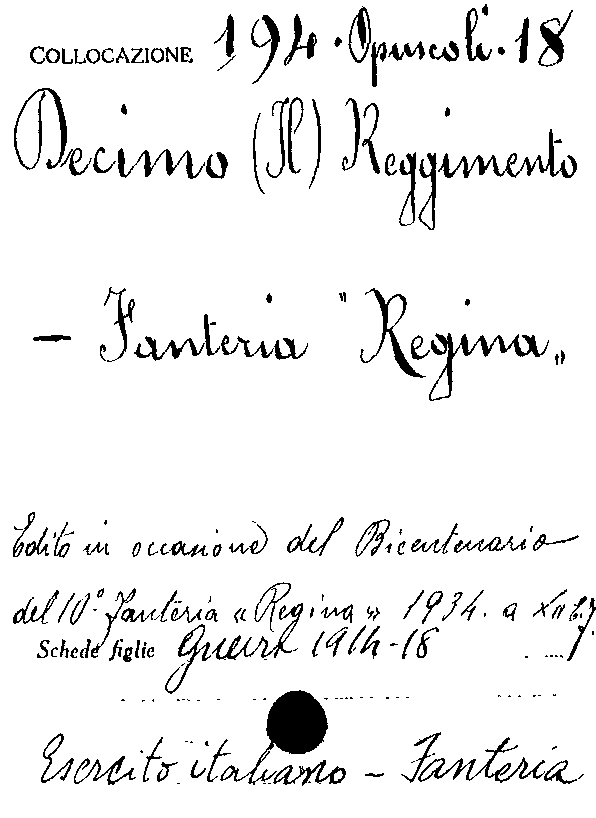 COLLOCAZIONE 194. Opuscoli. 18
Decimo (Il) Reggimento
— Fanteria "Regina„
Edito in occasione del Bicentenario
del 10° Fanteria «Regina» 1934. a XII
Schede figlie Guerra 1914-18
Esercito italiano – Fanteria